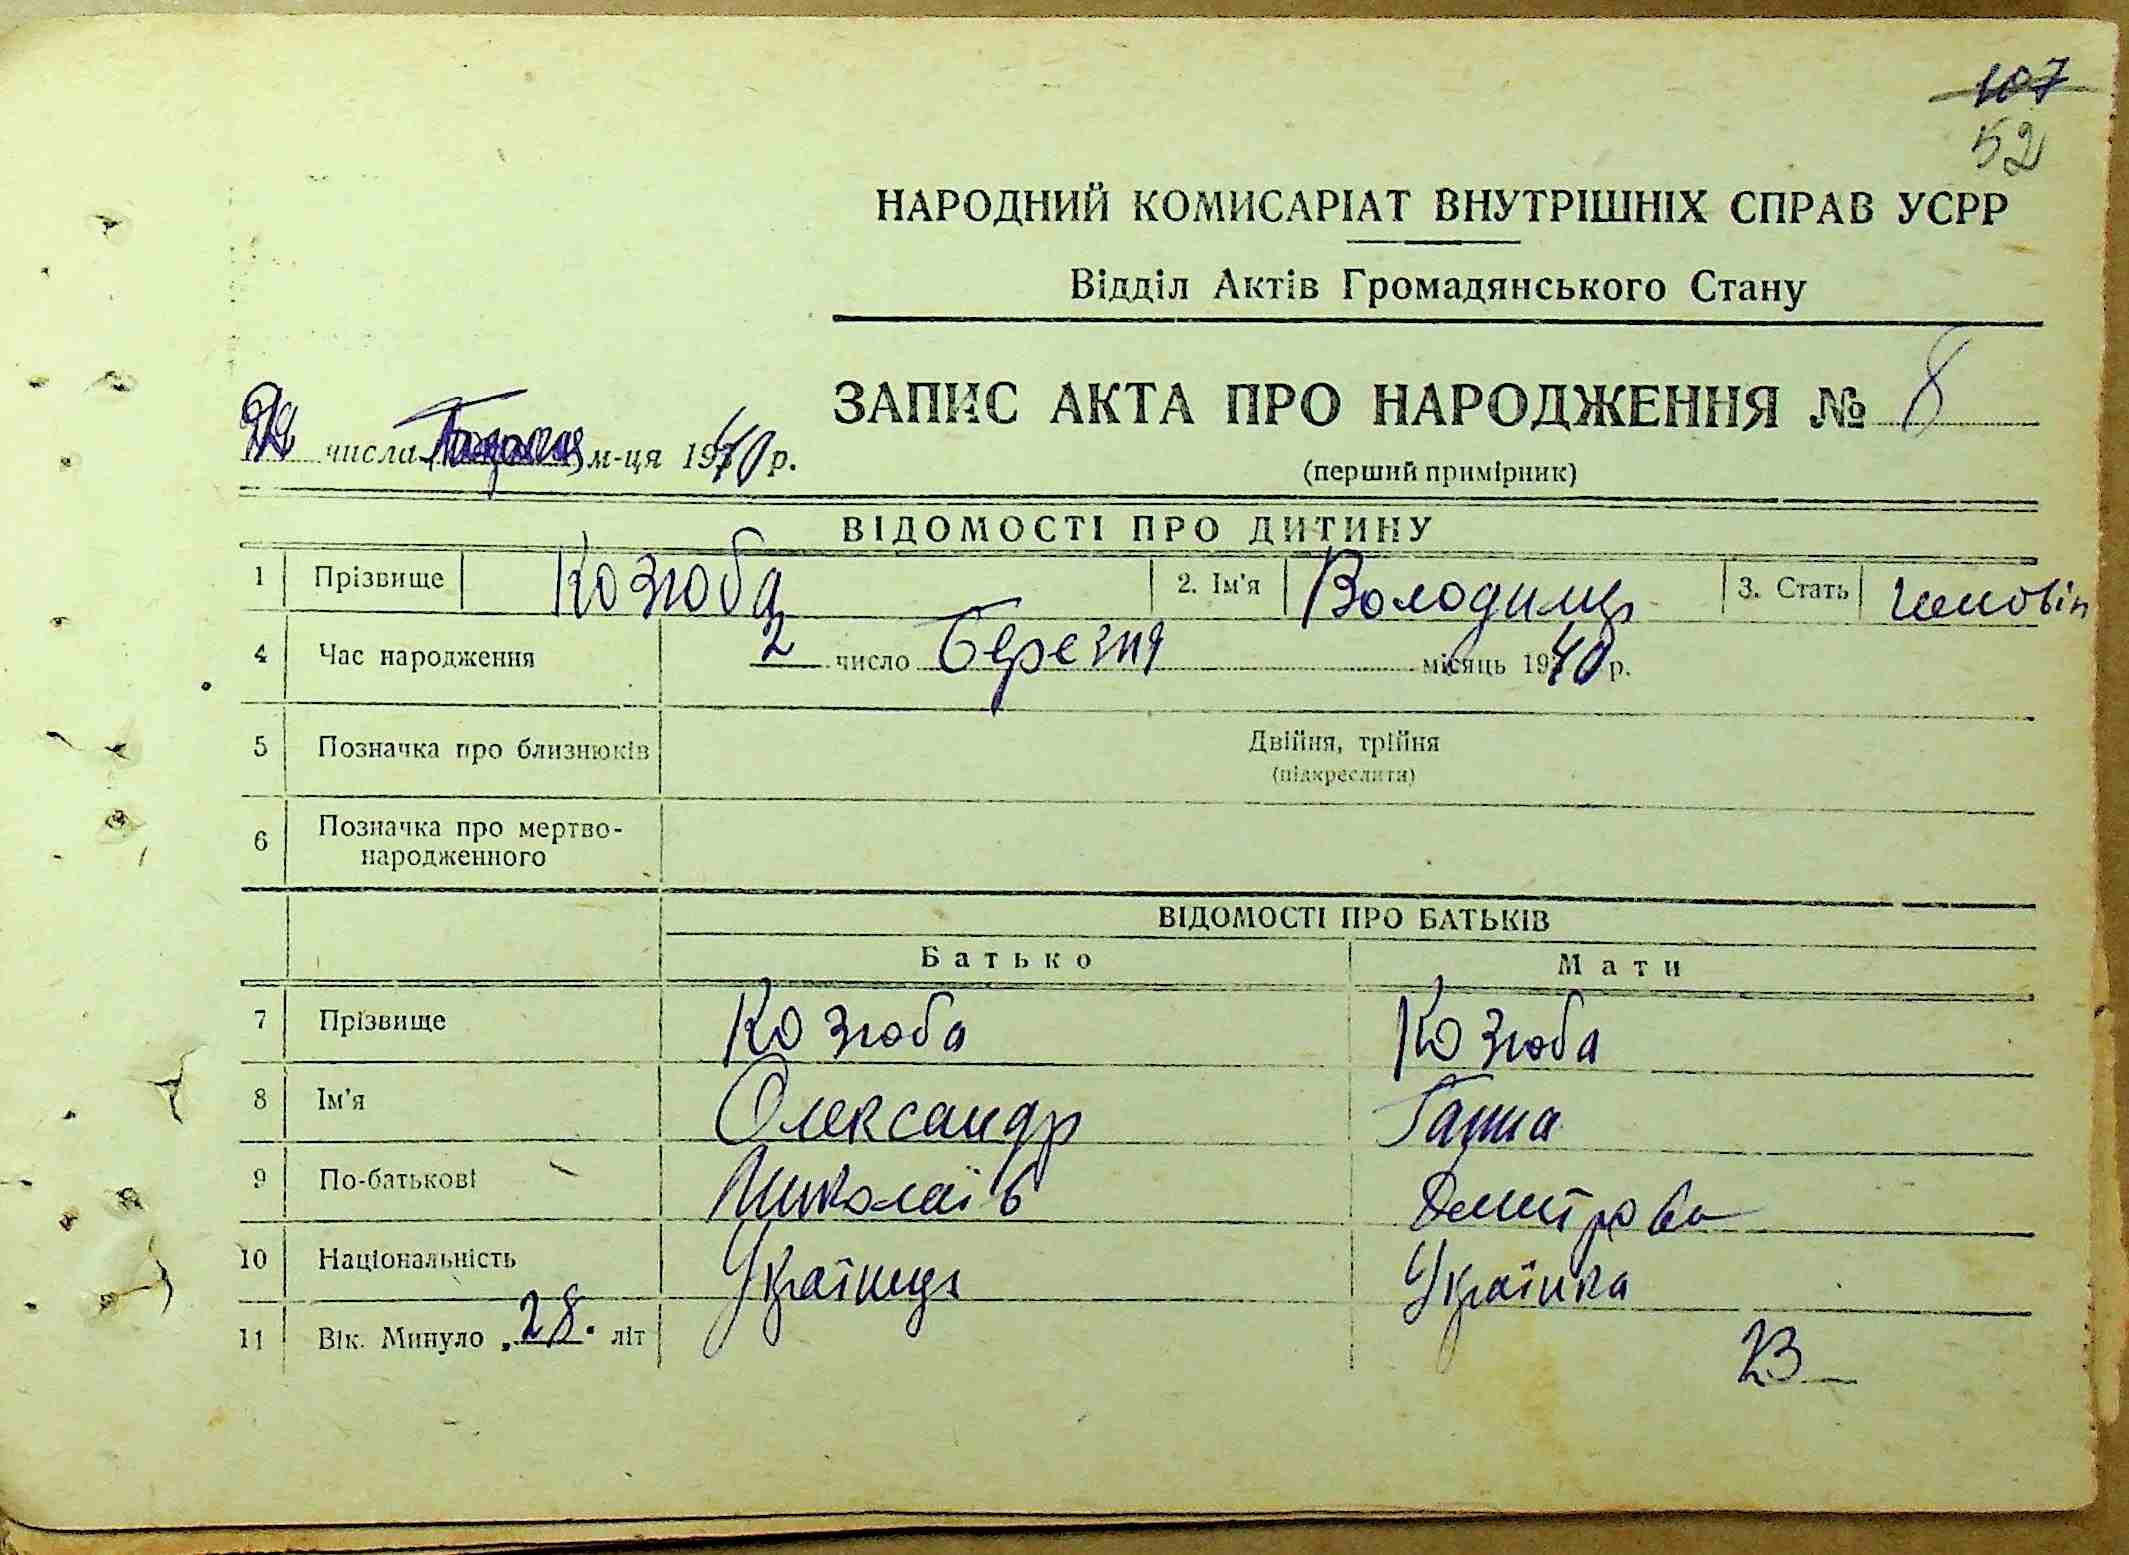 107
52
НАРОДНИЙ КОМИСАРІАТ ВНУТРІШНІХ СПРАВ УСРР
Відділ Актів Громадянського Стану
ЗАПИС АКТА ПРО НАРОДЖЕННЯ № 8
числа м-ця 1940 р.
(перший примірник)
ВІДОМОСТІ ПРО ДИТИНУ
1 Прізвище Козюба 2. Ім'я Володимир 3. Стать чоловіч
4 Час народження 2 число Березня місяць 1940 р.
5 Позначка про близнюків Двійня, трійня
(підкреслити)
6 Позначка про мертво-
народженного
ВІДОМОСТІ ПРО БАТЬКІВ
Батько Мати
7 Прізвище Козюба Козюба
8 Ім'я Олександр Ганна
9 По-батькові Миколаїв Дмитрова
10 Національність Українець Українка
11 Вік. Минуло „28" літ 23